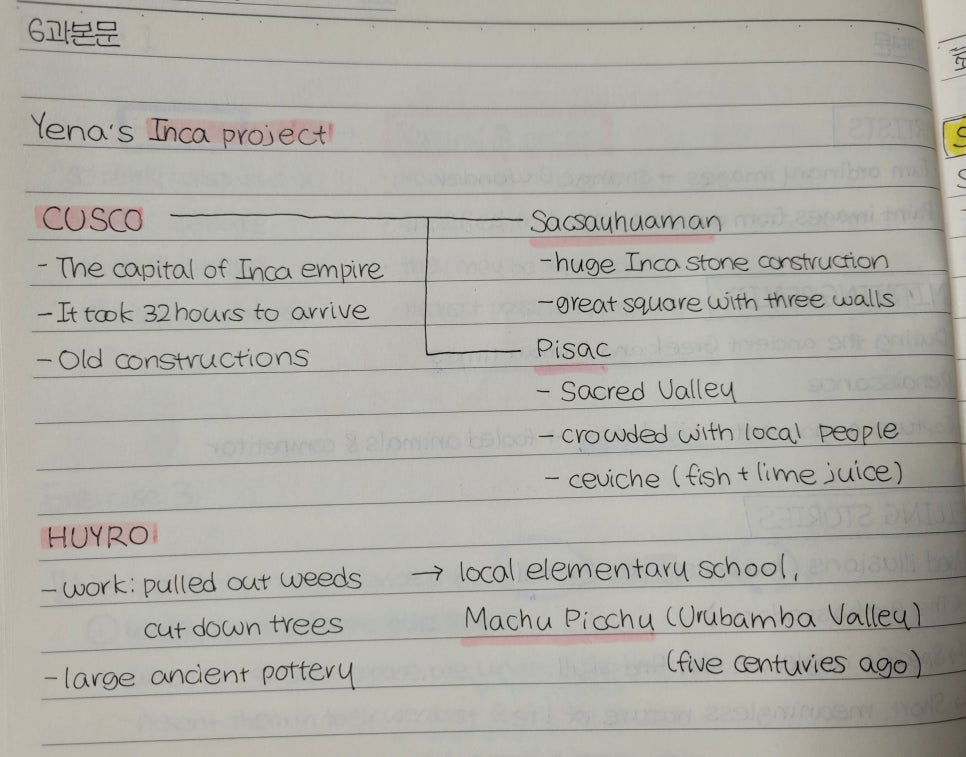 6과본문
Yena's Inca project
CUSCO
- The capital of Inca empire
- It took 32 hours to arrive
- Old constructions
Sacsayhuaman
- huge Inca stone construction
- great square with three walls
Pisac
- Sacred Valley
- crowded with local people
- ceviche (fish + lime juice)
HUYRO
- work: pulled out weeds → local elementary school,
cut down trees Machu Picchu (Urubamba Valley)
- large ancient pottery (five centuries ago)